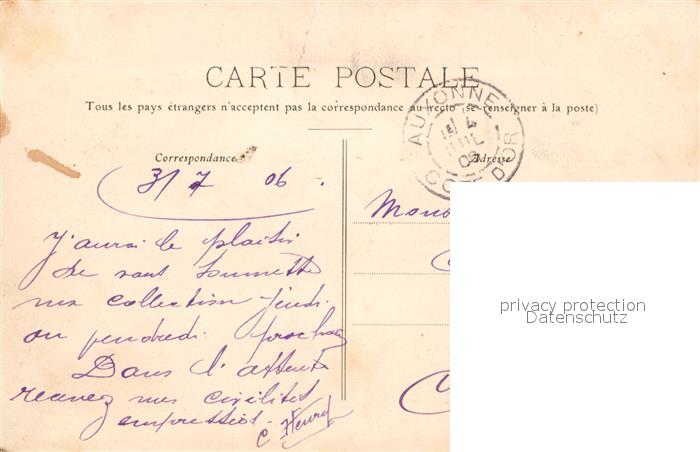 CARTE POSTALE
Tous les pays étrangers n'acceptent pas la correspondance au recto (se renseigner à la poste)
AUXONNE
4
JUIL
06
COTE D'OR
Correspondance
Adresse
3/7 06.
Mons
J'aurai le plaisir
de vous soumettre
ma collection jeudi
ou vendredi prochain
Dans l'attente
recevez mes civilités
empressées.
C. Henry
privacy protection
Datenschutz